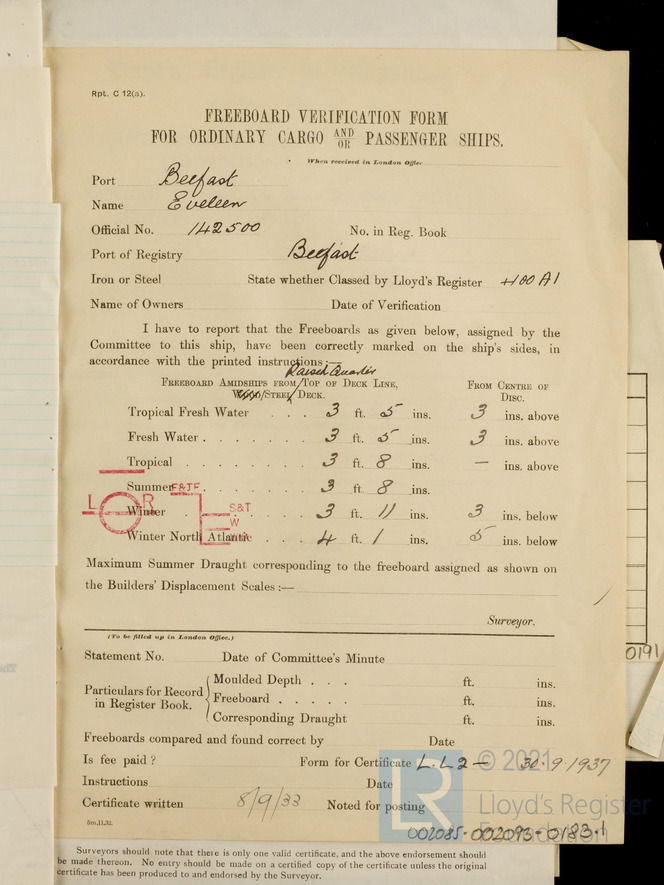 Rpt. C 12(a).
FREEBOARD VERIFICATION FORM
FOR ORDINARY CARGO AND/OR PASSENGER SHIPS.
When received in London Office
Port Belfast
Name Eveleen
Official No. 142500 No. in Reg. Book
Port of Registry Belfast
Iron or Steel State whether Classed by Lloyd's Register +100 A1
Name of Owners Date of Verification
I have to report that the Freeboards as given below, assigned by the
Committee to this ship, have been correctly marked on the ship's sides, in
accordance with the printed instructions:—
Raised Quarter
FREEBOARD AMIDSHIPS FROM TOP OF DECK LINE, FROM CENTRE OF
WOOD/STEEL DECK. DISC.
Tropical Fresh Water . . . 3 ft. 5 ins. 3 ins. above
Fresh Water . . . . . . 3 ft. 5 ins. 3 ins. above
Tropical . . . . . . . 3 ft. 8 ins. — ins. above
Summer F&TF . . . . . . 3 ft. 8 ins.
L R Winter S&T W . . . 3 ft. 11 ins. 3 ins. below
Winter North Atlantic . . . 4 ft. 1 ins. 5 ins. below
Maximum Summer Draught corresponding to the freeboard assigned as shown on
the Builders' Displacement Scales :—
Surveyor.
(To be filled up in London Office.)
Statement No. Date of Committee's Minute
Particulars for Record in Register Book.
Moulded Depth . . . ft. ins.
Freeboard . . . . . ft. ins.
Corresponding Draught ft. ins.
Freeboards compared and found correct by Date
Is fee paid ? Form for Certificate L.L 2 — 30.9.1937
Instructions Date
Certificate written 8/9/33 Noted for posting
5m,11,32.
© 2021
Lloyd's Register
Foundation
LR
002085-002093-0183-1
0191
Surveyors should note that there is only one valid certificate, and the above endorsement should
be made thereon. No entry should be made on a certified copy of the certificate unless the original
certificate has been produced to and endorsed by the Surveyor.